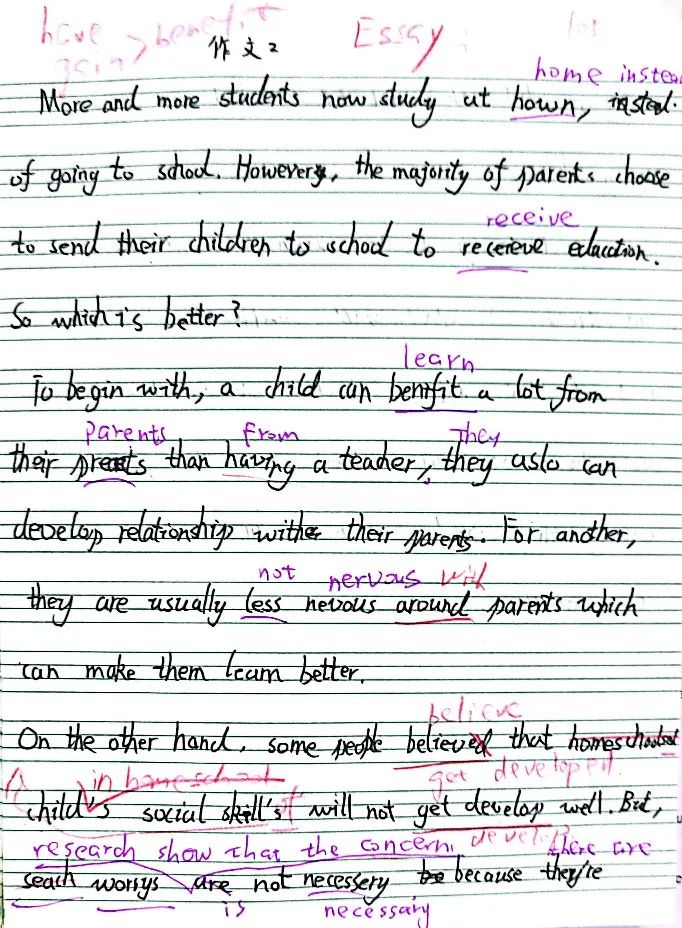 have > benefit
gain
作文2
Essay:
lot
home instea
More and more students now study at hown, insted.
of going to school. However, the majority of parents choose
receive
to send their children to school to receieve education.
So which is better?
learn
To begin with, a child can benifit a lot from
parents from They
their prests than having a teacher, they aslo can
develop relationship withe their parents. For another,
not nervous with
they are usually less nevous around parents which
can make them learn better.
believe
On the other hand, some people believed that homeschooled
in homeschool get developed.
child's social skill's will not get develop well. But,
research show that the concern develop there are
seach worsys are not necessery be because they're
is necessary